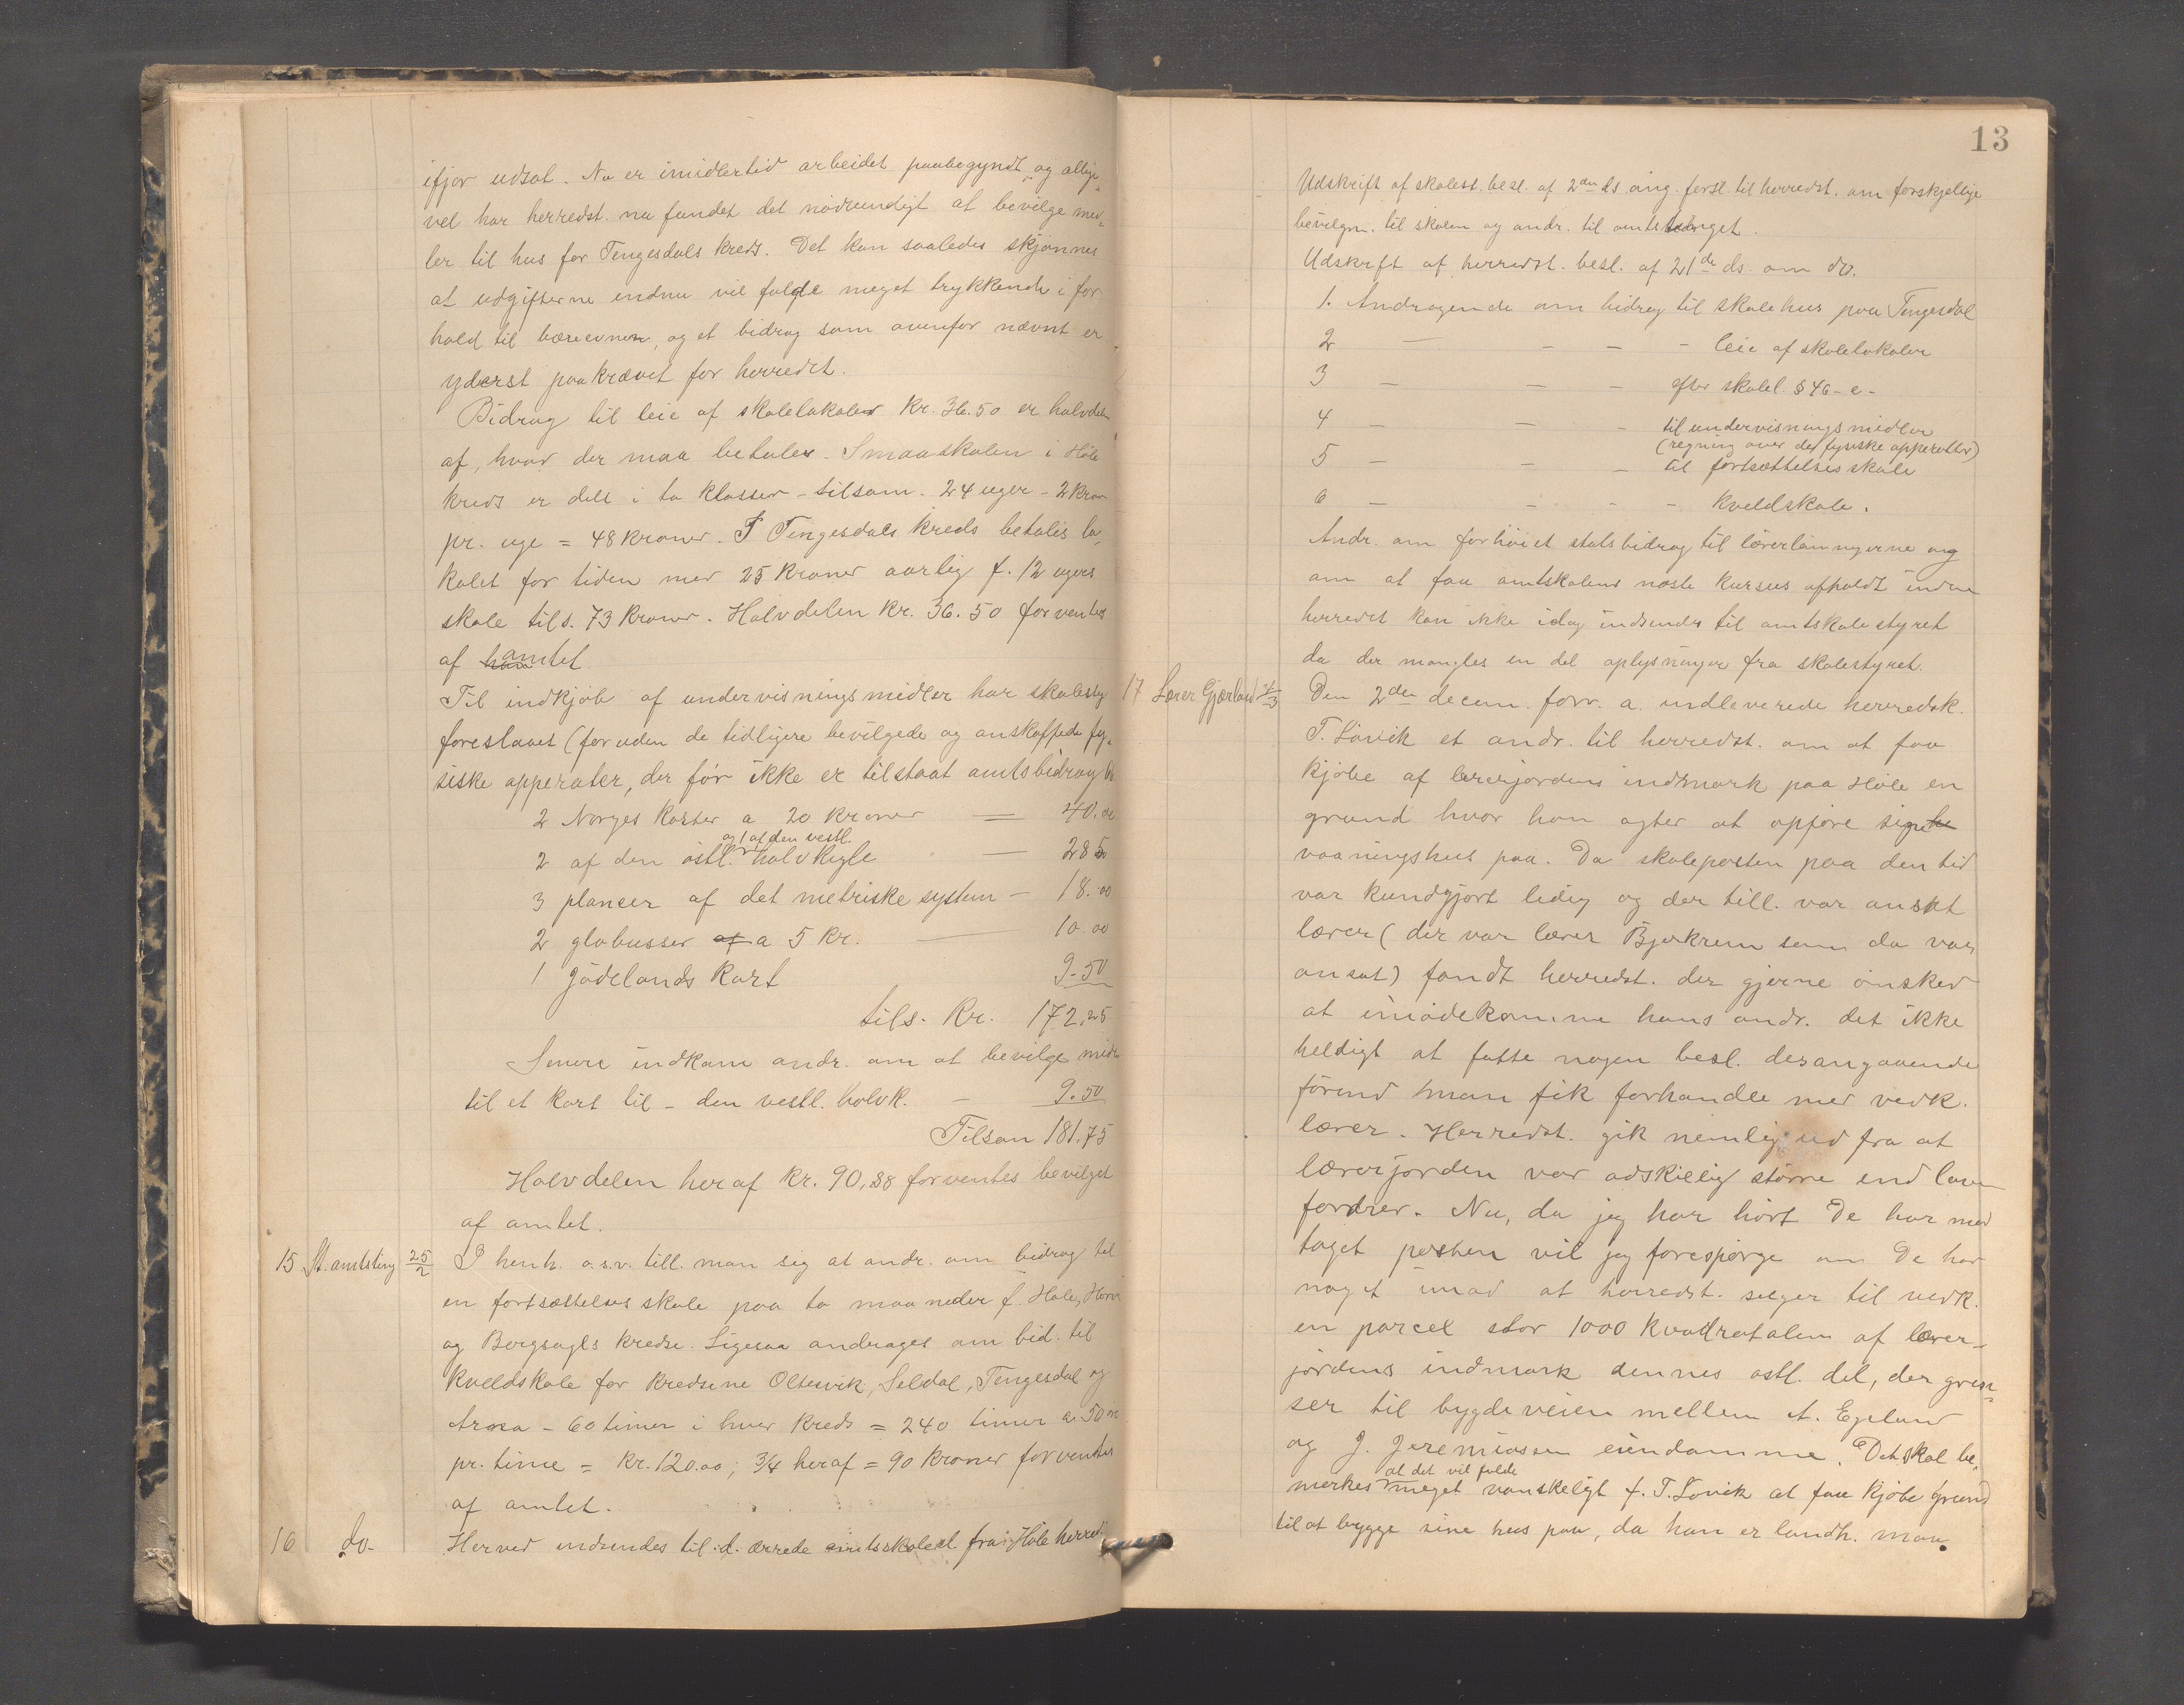 ifjor udsat. Nu er imidlertid arbeidet paabegyndt, og allige-
vel har herredst. nu fundet det nødvendigt at bevilge mid-
ler til hus for Tengesdals kreds. Det kan saaledes skjønnes
at udgifterne endnu vil falde meget trykkende i for-
hold til bæreevnen, og et bidrag som ovenfor nævnt er
yderst paakrævet for herredet.
Bidrag til leie af skolelokaler kr. 36.50 er halvdelen
af, hvad der maa betales. Smaaskolen i Høle
kreds er delt i to klasser - tilsam. 24 uger - 2 kroner
pr. uge = 48 kroner. I Tengesdals kreds betales lo-
kalet for tiden med 25 kroner aarlig f. 12 ugers
skole tils. 73 kroner. Halvdelen kr. 36.50 forventes
af amtet.
Til indkjøb af undervisningsmidler har skolesty
foreslaaet (foruden de tidligere bevilgede og anskaffede fy-
siske apperater, der før ikke er tilstaat amtsbidrag til
2 Norges karter a 20 kroner = 40.00
og 1 af den vestl.
2 af den østl. halvkugle — 28 50
3 plancer af det metriske system — 18.00
2 globusser af a 5 kr. — 10.00
1 Jødelands kart 9.50
tils. Kr. 172,25
Senere indkom andr. om at bevilge midl
til et kart til - den vestl. halvk. — 9.50
Tilsam 181.75
Halvdelen heraf kr. 90,88 forventes bevilget
af amtet.
15 St. amtsting 25/2 I henh. o.s.v. till. man sig at andr. om bidrag til
en fortsættelses skole paa to maaneder f. Høle, Høvi
og Bergsagls kredse. Ligesaa andrages om bid. til
kveldskole for kredsene Oltesvik, Seldal, Tengesdal og
Aroea - 60 timer i hver kreds = 240 timer a 50 øre
pr. time = kr. 120.00; 3/4 heraf = 90 kroner forventes
af amtet.
16 do. Herved indsendes til d. ærede amtsskolest. fra Høle herred
13
Udskrift af skolest. besl. af 2den ds ang. forsl. til herredst. om forskjellige
bevilgn. til skolen og andr. til amtstinget.
Udskrift af herredst. besl. af 21de ds. om do.
1. Andragende om bidrag til skolehus paa Tengesdal
2 — - — - leie af skolelokaler
3 — — - efter skolel. § 46 - e -
4 — — - til undervisningsmidler
(regning over de fysiske apperatter)
5 — - - til fortsættelsesskole
6 — - - - kveldskole.
Andr. om forhøiet statsbidrag til lærerlønnerne og
om at faa amtskolens næste kursus afholdt i indre
herredet kan ikke idag indsendes til amtskolestyret
da der mangles en del oplysninger fra skolestyret.
17 Lærer Gjørland 2/3 Den 2den decem. forr. a. indleverede herredsk.
T. Løvik et andr. til herredst. om at faa
kjøbe af lærerjordens indmark paa Høle en
grund hvor han agter at opføre sig et
vaaningshus paa. Da skoleposten paa den tid
var kundgjort ledig og der till. var ansat
lærer (der var lærer Bjerkrem som da var
ansat) fandt herredst. der gjerne ønsked
at imødekomme hans andr. det ikke
heldigt at fatte nogen besl. desangaaende
førend man fik forhandle med vedk.
lærer. Herredst. gik nemlig ud fra at
lærerjorden var adskillig større end loven
fordrer. Nu, da jeg har hørt De har mod
taget posten vil jeg forespørge om De har
noget imod at herredst. selger til vedk.
en parcel stor 1000 kvadratalen af lærer-
jordens indmark dennes østl. del, der gren-
ser til bygdeveien mellem A. Egeland
og J. Jeremiassen eiendomme. Det skal be-
at det vil falde
merkes meget vanskeligt f. T. Løvik at faa kjøbe grund
til at bygge sine hus paa, da han er landh. man.